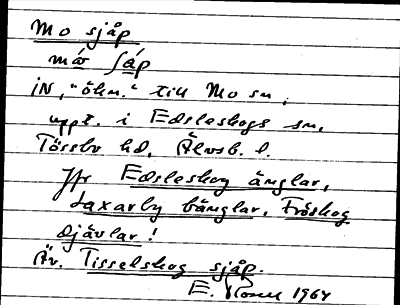 Mo sjåp
må ʃáp
iN, "ökn." till Mo sn,
uppt. i Edsleskogs sn,
Tössbo hd, Älvsb. l.
Jfr Edsleskog änglar,
Laxarby bänglar, Fröskog
djävlar!
Äv. Tisselskog sjåp.
E. 1964